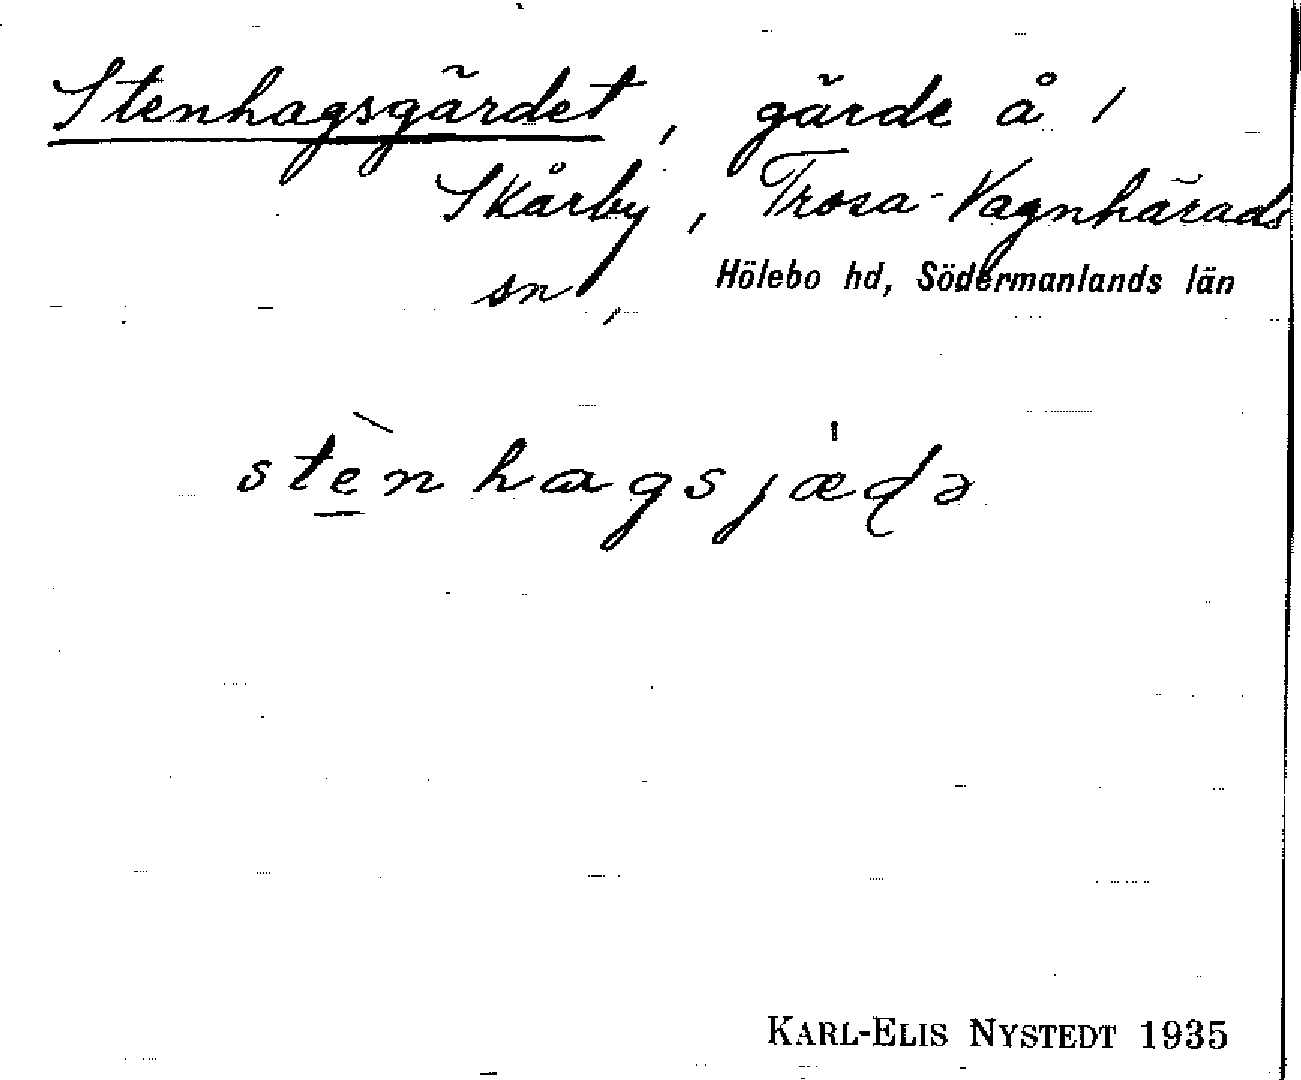 Stenhagsgärdet, gärde å 1
Skårby, Trosa-Vagnhärads
sn, Hölebo hd, Södermanlands län
stè̠nhagsjæ̍ɖə
KARL-ELIS NYSTEDT 1935